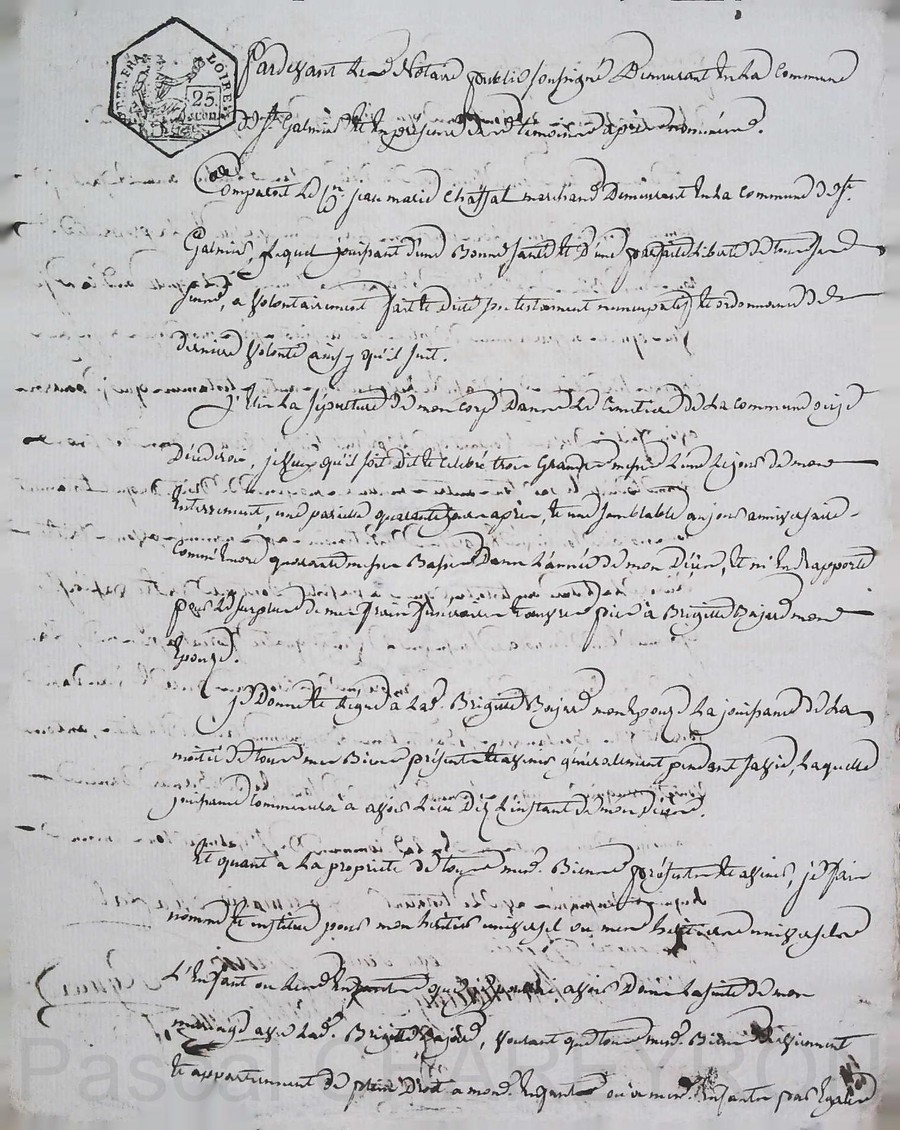 REP. FRA.
LOIRE
25
Pardevant Le Notaire public soussigné Demeurant En La Commune
de St. Galmier Et En presence des témoins après nommés.
Comparoit Le Jean marie Chaffal marchand Demeurant En La Commune de St.
Galmier, Lequel jouissant d'une Bonne santé Et D'une parfaite Liberté de tous ses
sens, a volontairement fait Et Dicté son testament nuncupatif Et ordonnance de
derniere volonté ainsy qu'il suit.
j'Elis La sépulture de mon corps Dans Le Cimetiere de La commune où je
Décéderai, je veux qu'il soit Dit Et célébré trois Grandes messes L'une Le jour de mon
Enterrement, une pareille quarante jours après, Et une semblable au jour anniversaire
Comm'Encore quarante messes Basses Dans L'année de mon Décès, Et m'En rapporte
pour Le surplus de mes frais funeraires Et œuvres pies à Brigitte Bajard mon
Epouse.
je Donne Et Legue à Lad. Brigitte Bajard mon Epouse La jouissance de La
moitié de tous mes Biens présents Et avenir généralement pendant sa vie, Laquelle
jouissance Commencera à avoir Lieu Dès L'instant de mon Décès.
Et quant a La propriété de tous mesd. Biens présents Et avenir, je fais
nomme Et institue pour mon héritier universel ou mes héritiers universels
L'Enfant ou Les Enfants que avoir Dans La suite de mon
mariage avec Lad. Brigitte Bajard, voulant que tous mesd. Biens
Et appartiennent de plein Droit a mond. Enfant ou a mesd. Enfants par Egalité
Pascal CHAREYRON